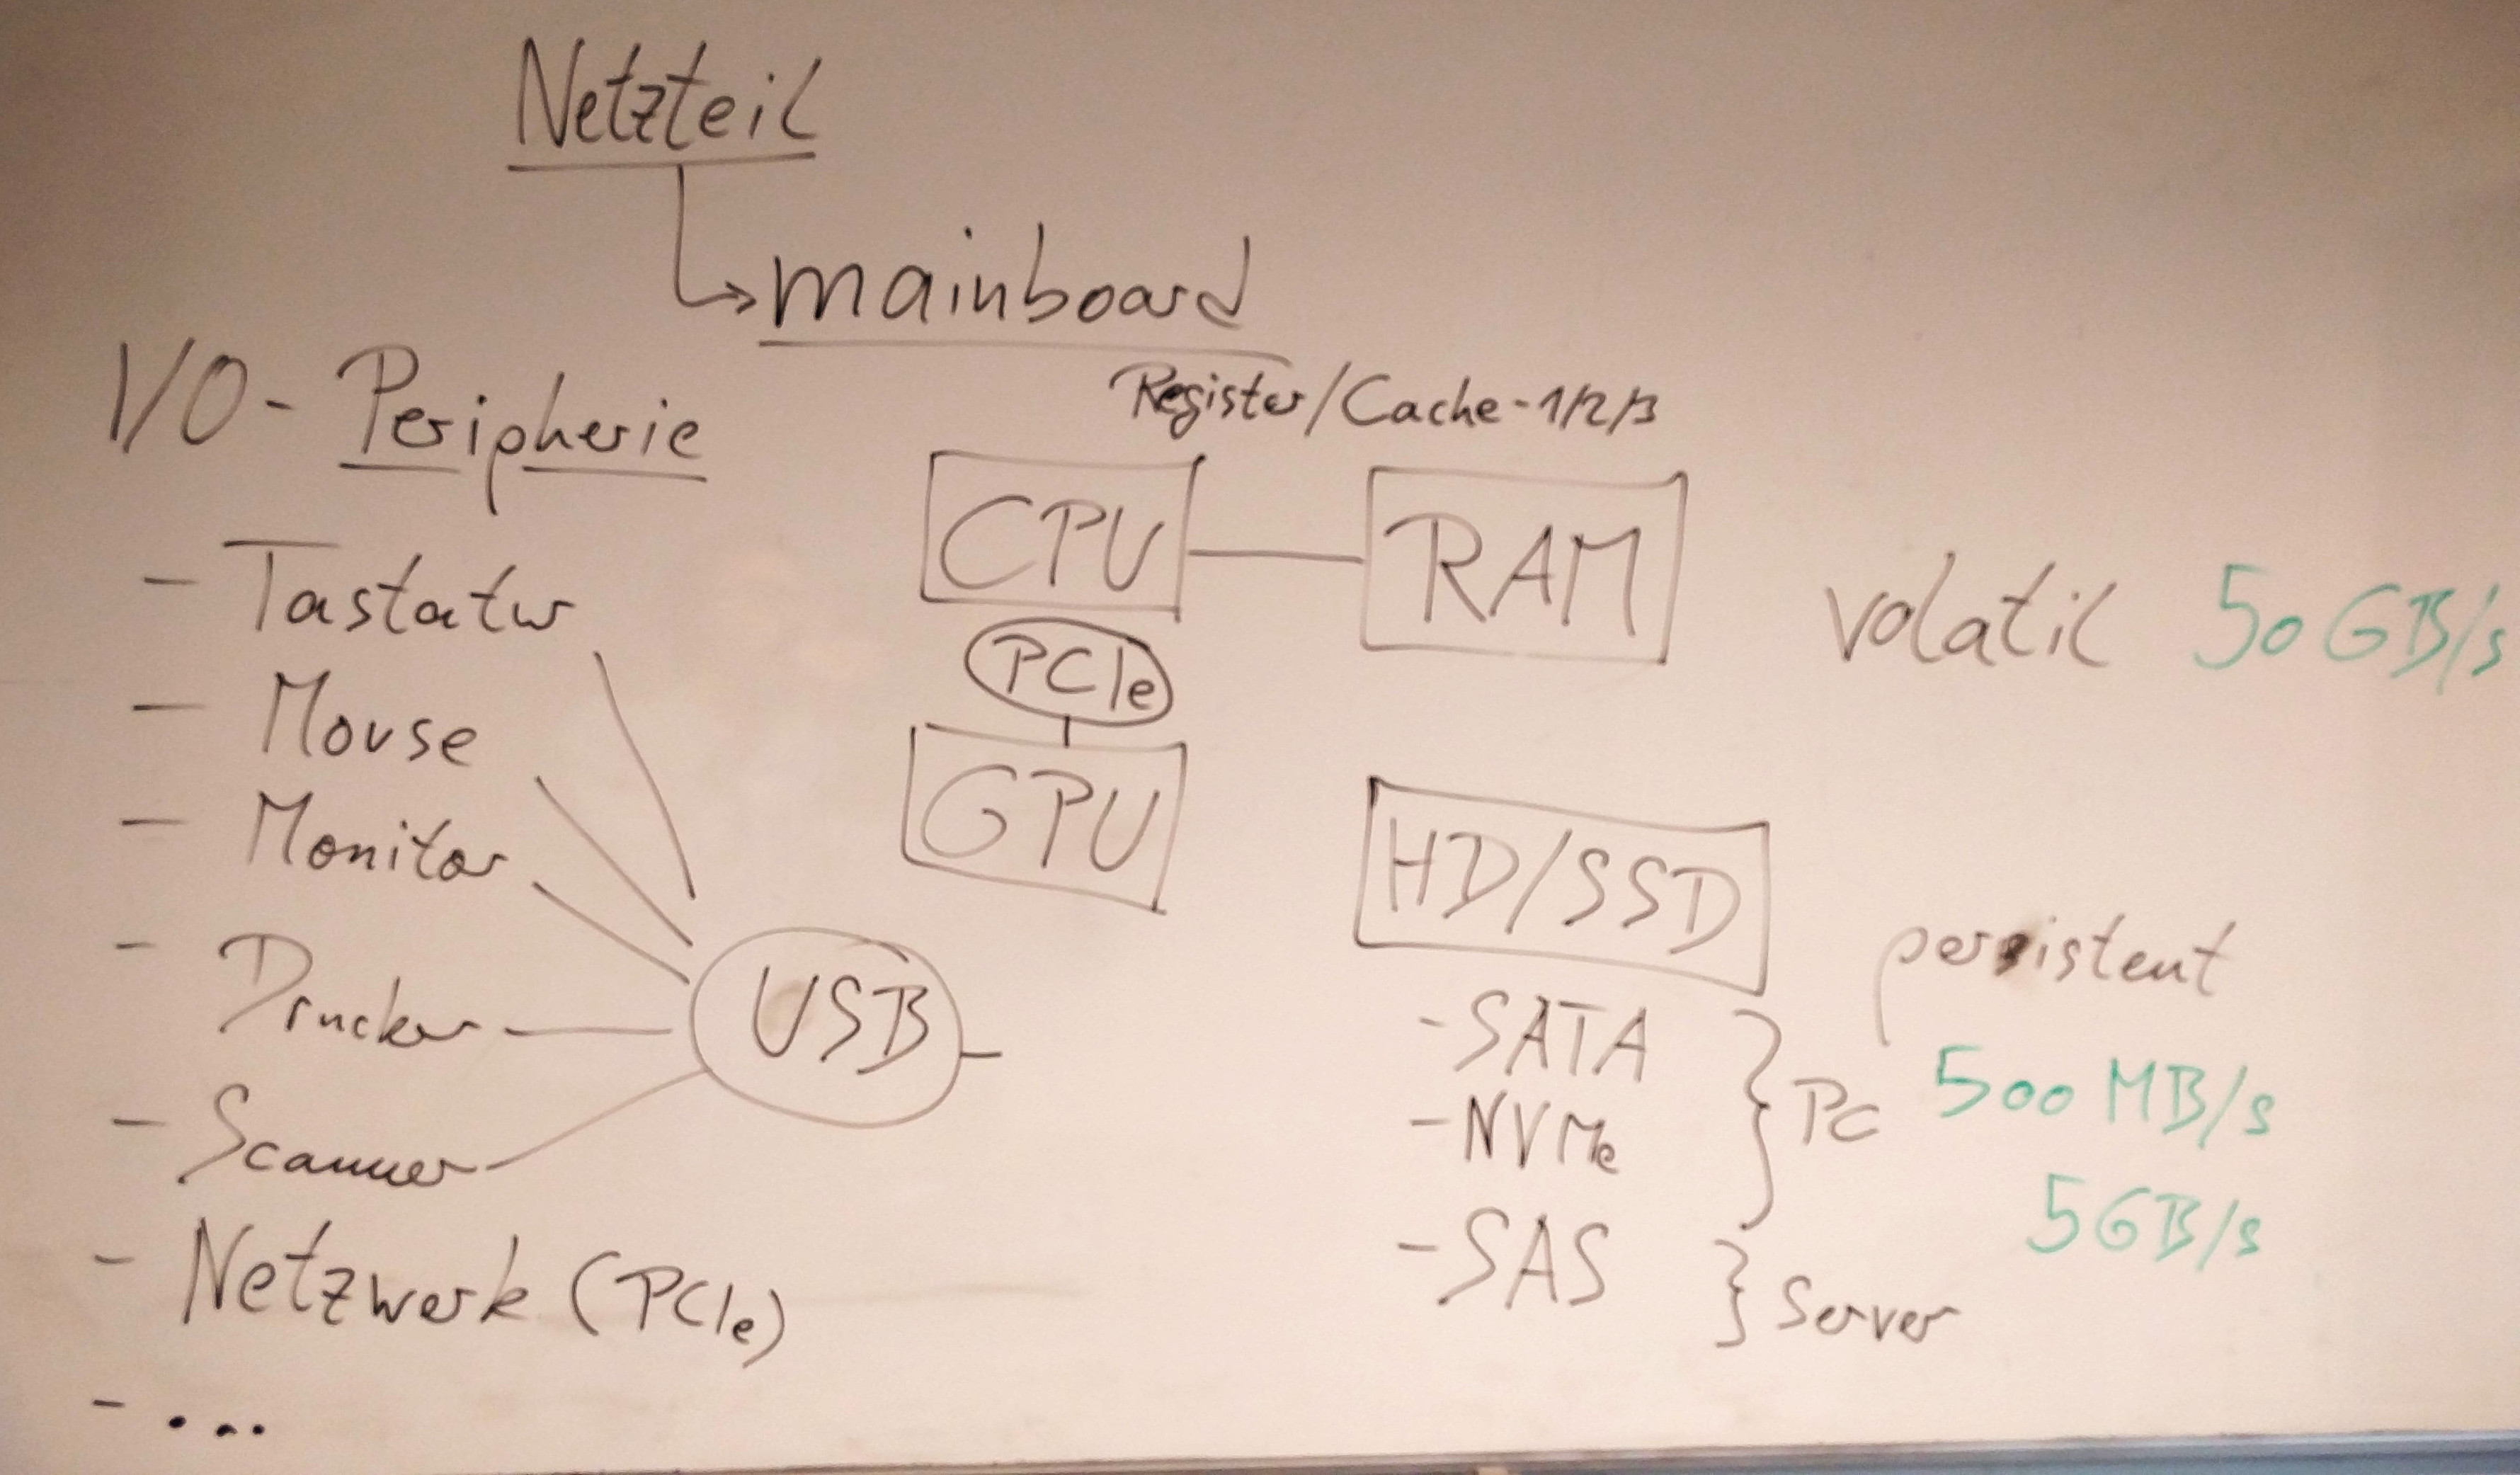 Netzteil
mainboard
I/O - Peripherie
- Tastatur
- Mouse
- Monitor
- Drucker
- Scanner
- Netzwerk (PCIe)
- ...
USB
Register/Cache-1/2/3
CPU
RAM
volatil 50 GB/s
PCIe
GPU
HD/SSD
persistent
- SATA
- NVMe
} PC
500 MB/s
5 GB/s
- SAS } Server